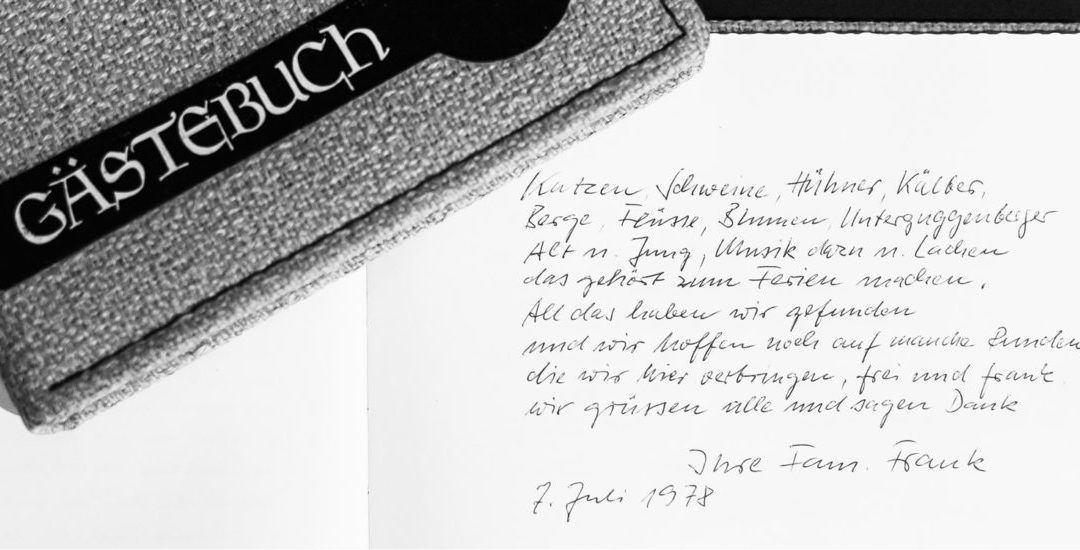 GÄSTEBUCH
Katzen, Schweine, Hühner, Kälber,
Berge, Flüsse, Blumen, Unterguggenberger
Alt u. Jung, Musik dazu u. Lachen
das gehört zum Ferien machen.
All das haben wir gefunden
und wir hoffen noch auf manche Runden
die wir hier verbringen, frei und frank
wir grüssen alle und sagen Dank
Ihre Fam. Frank
7. Juli 1978